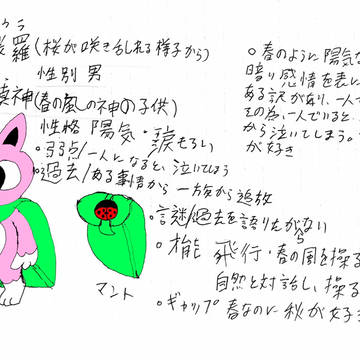 羅(桜が咲き乱れる様子から)
性別 男
神(春の嵐の神の子供)
性格 陽気・涙もろい
・弱点/一人になると、泣いてしまう
・過去/ある事情から一族から追放
・謎/過去を語りたがらない
・才能 飛行・春の風を操る
自然と対話し、操る
・ギャップ 春なのに秋が好き
マント
○春のように陽気な
暗い感情を表に
ある訳があり、一人
その為、一人でいると、
から泣いてしまう。
が好き